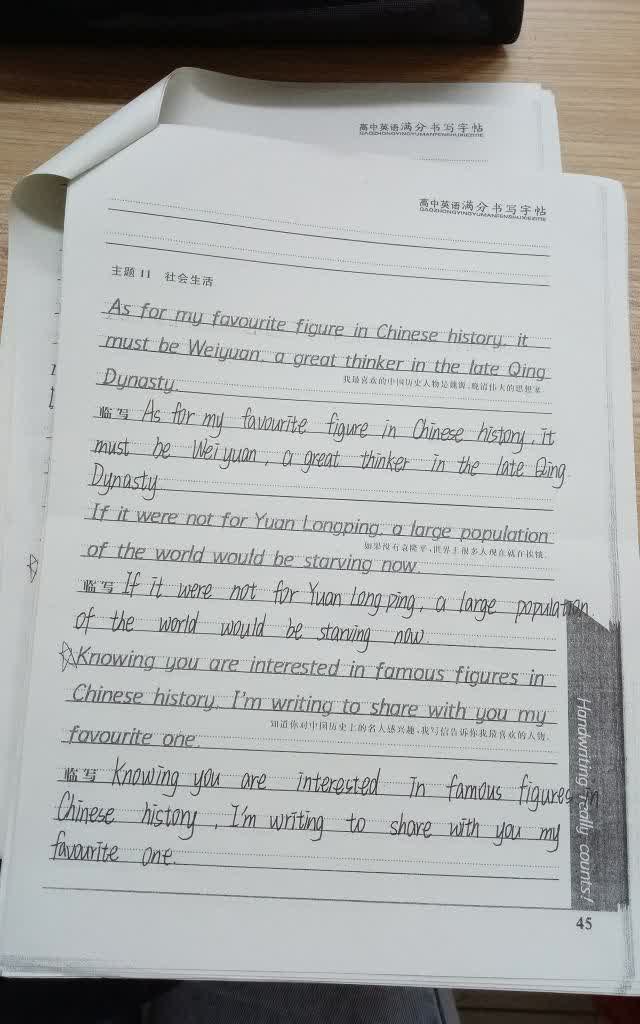 高中英语满分书写字帖
GAOZHONGYINGYUMANFENSHUXIEZITIE
高中英语满分书写字帖
GAOZHONGYINGYUMANFENSHUXIEZITIE
主题 11 社会生活
As for my favourite figure in Chinese history, it
must be Weiyuan, a great thinker in the late Qing
我最喜欢的中国历史人物是魏源,晚清伟大的思想家。
Dynasty.
临写 As for my favourite figure in Chinese history, it
must be Wei yuan, a great thinker in the late Qing
Dynasty
If it were not for Yuan Longping, a large population
如果没有袁隆平,世界上很多人现在就在挨饿。
of the world would be starving now.
临写 If it were not for Yuan Long ping, a large population
of the world would be starving now.
Knowing you are interested in famous figures in
Chinese history, I'm writing to share with you my
知道你对中国历史上的名人感兴趣,我写信告诉你我最喜欢的人物。
favourite one.
临写 Knowing you are interested in famous figures in
Chinese history, I'm writing to share with you my
favourite one.
Handwriting really counts!
45